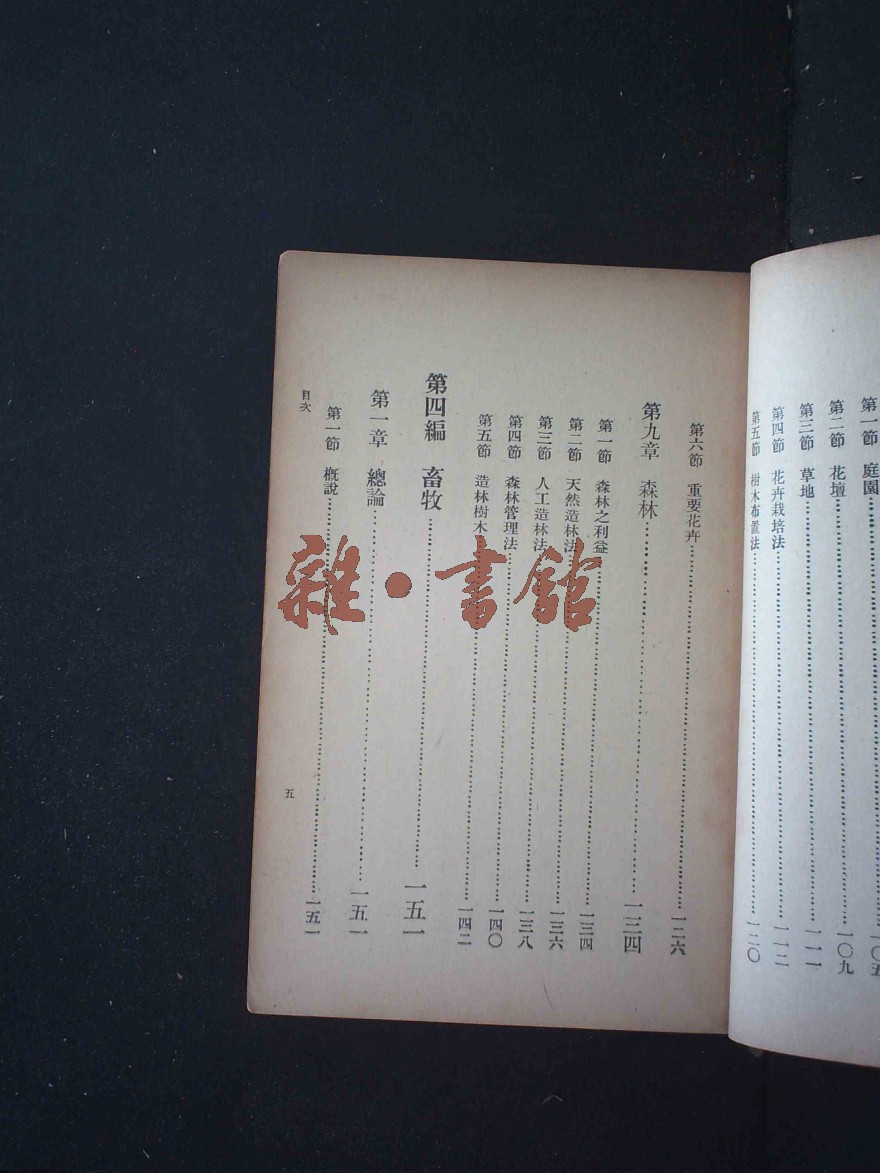 第一節 庭園……一〇五
第二節 花壇……一〇九
第三節 草地……一一一
第四節 花卉栽培法……一一二
第五節 樹木布置法……一二〇
第六節 重要花卉……一二六
第九章 森林……一三四
第一節 森林之利益……一三四
第二節 天然造林法……一三六
第三節 人工造林法……一三八
第四節 森林管理法……一四〇
第五節 造林樹木……一四二
第四編 畜牧……一五一
第一章 總論……一五一
第一節 概說……一五一
目次
五
雜·書館